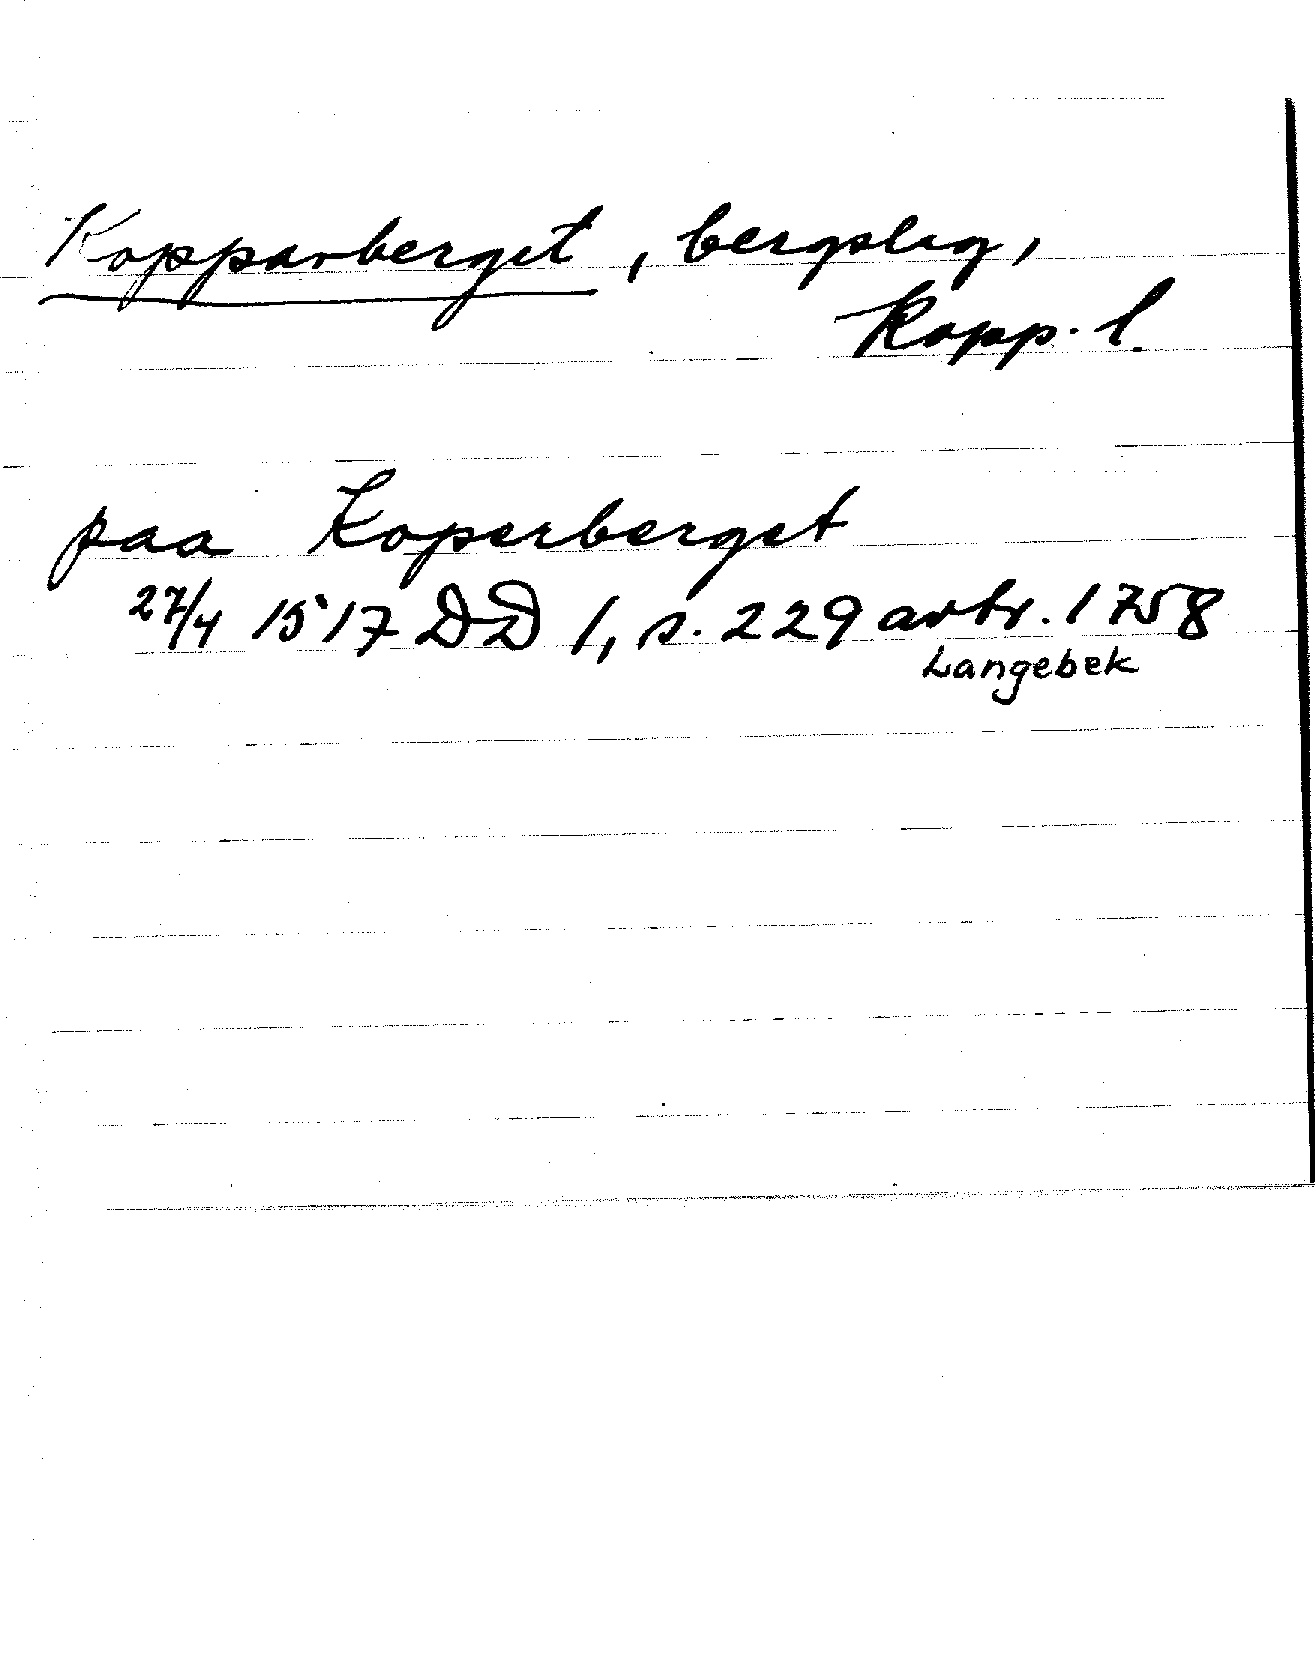 Kopparberget, bergslag,
Kopp. l.
paa Koperberget
27/4 1517 DD 1, s. 229 avtr. 1758
Langebek